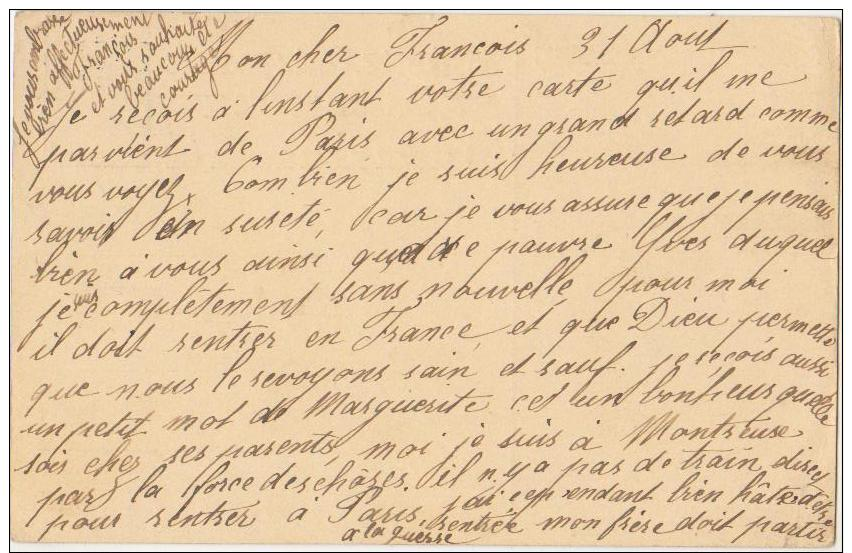 Mon cher François 31 Aout
Je reçois à linstant votre carte qu'il me
parvient de Paris avec un grand retard comme
vous voyez. Combien je suis heureuse de vous
savoir en sureté, car je vous assure que je pensais
bien à vous ainsi pauvre Yves duquel
je suis complètement sans nouvelle, pour moi
il doit rentrer en France, et que Dieu permette
que nous le revoyons sain et sauf. je reçois aussi
un petit mot de Marguerite cet un bonheur quelle
sois chez ses parents, moi je suis à
par la force des chôses. il n'y a pas de train direct
pour rentrer à Paris, j'ai cependant bien hâte d'être
rentrée mon frère doit partir
à la guerre
Je vous embrasse
bien affectueusement
François
et vous souhaite
beaucoup de
courage